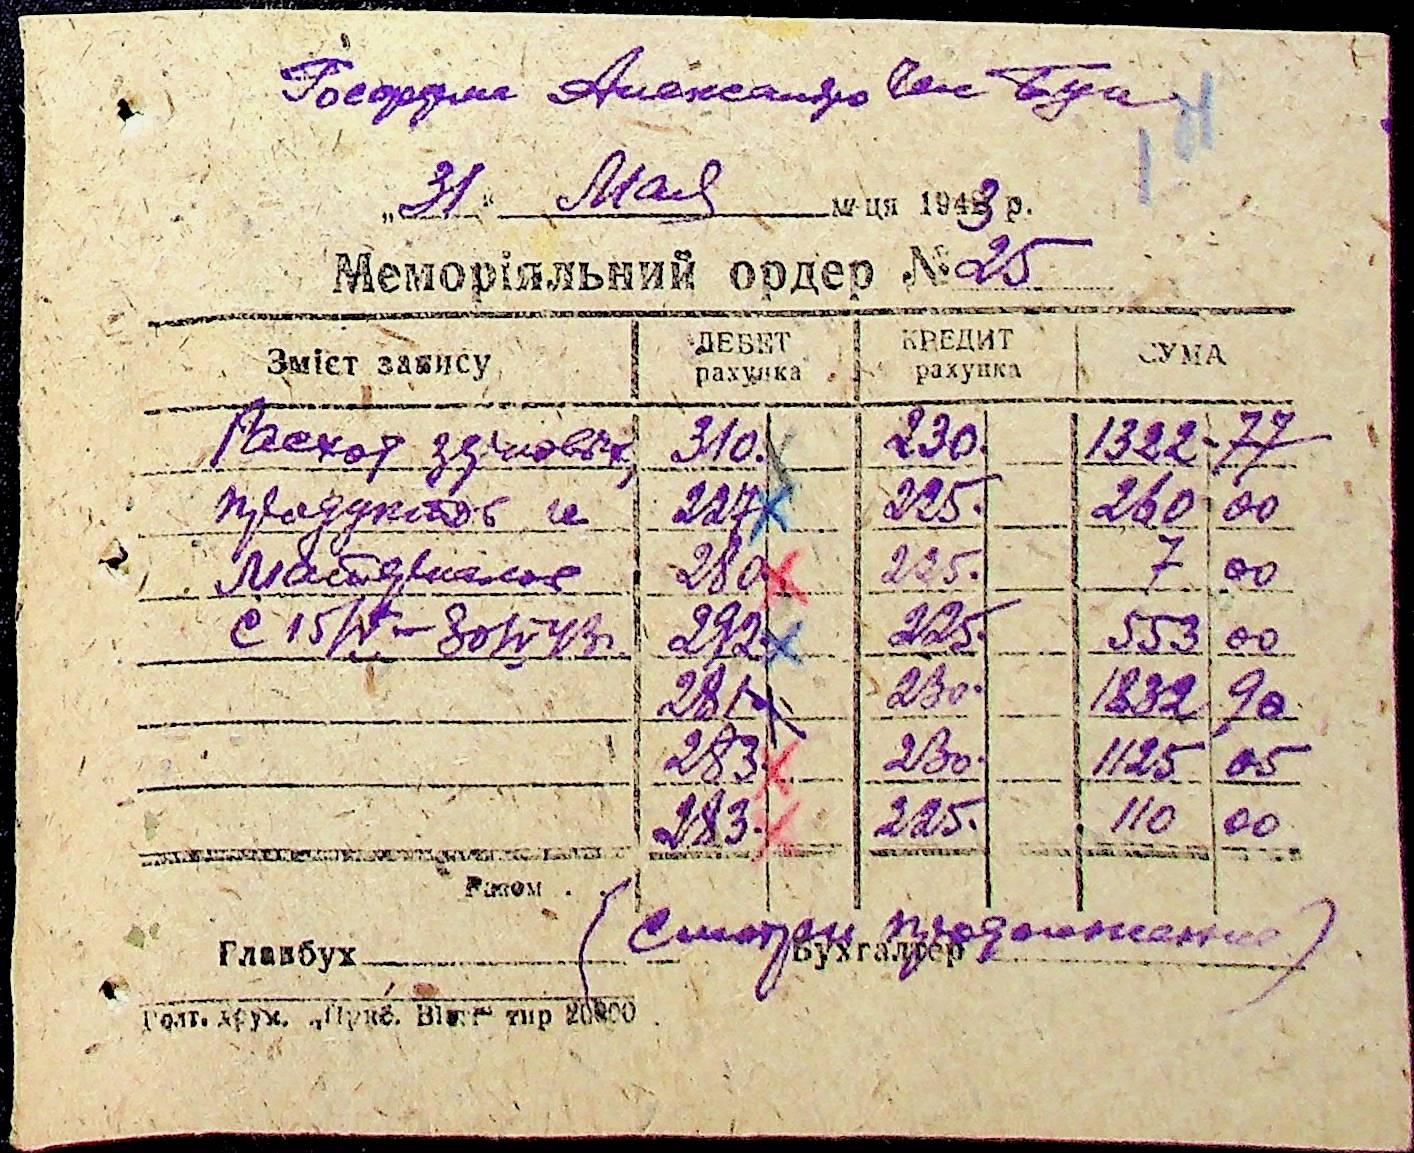 Госферма Александро
„31“ Мая м-ця 1943 р.
Меморіяльний ордер № 25
Зміст запису ДЕБЕТ рахунка КРЕДИТ рахунка СУМА
Расход 310. 230. 1322-77
продуктов и 227 225. 260 00
Материалов 280 225. 7 00
с 15/IV-30/IV 43г. 292. 225. 553 00
281 230. 1832 90
283. 230. 1125 05
283. 225. 110 00
Разом .
(Смотри продолжение)
Главбух Бухгалтер
друм. тир 20000